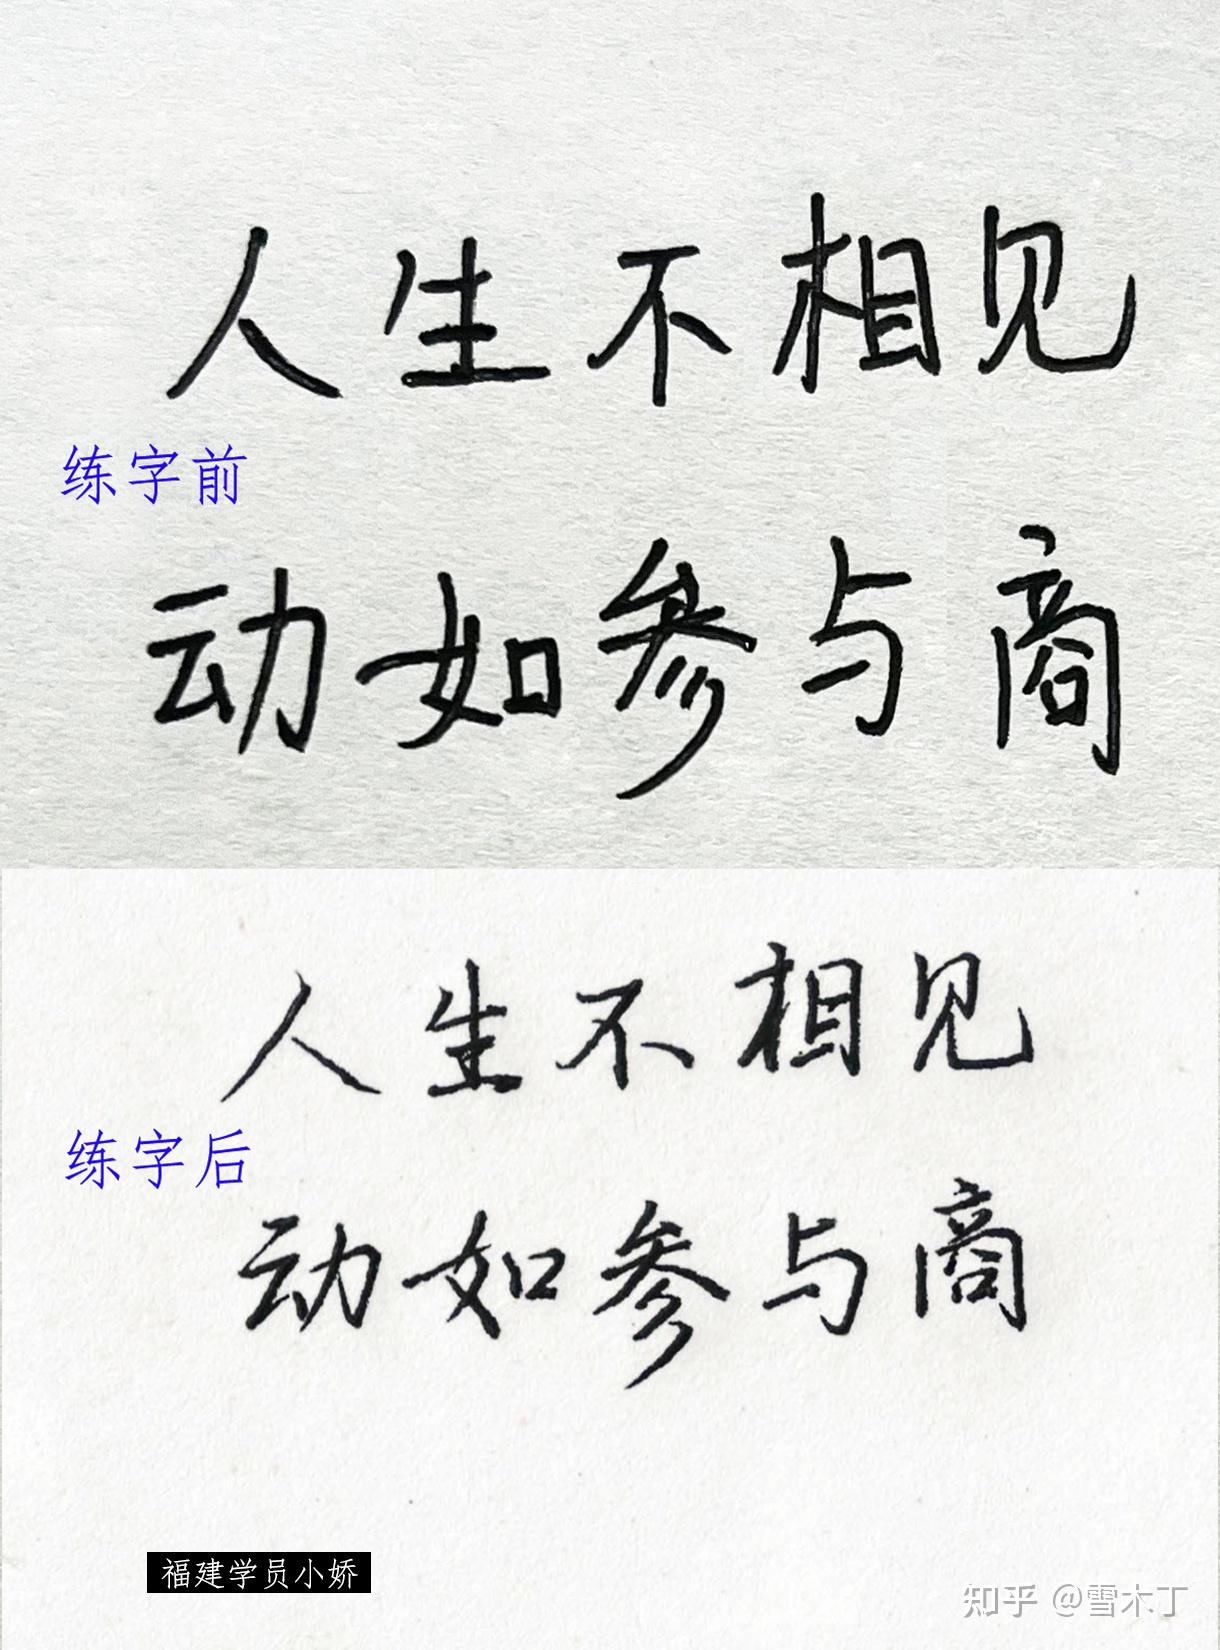 人生不相见
练字前
动如参与商
人生不相见
练字后
动如参与商
福建学员小娇
知乎 @雪木丁